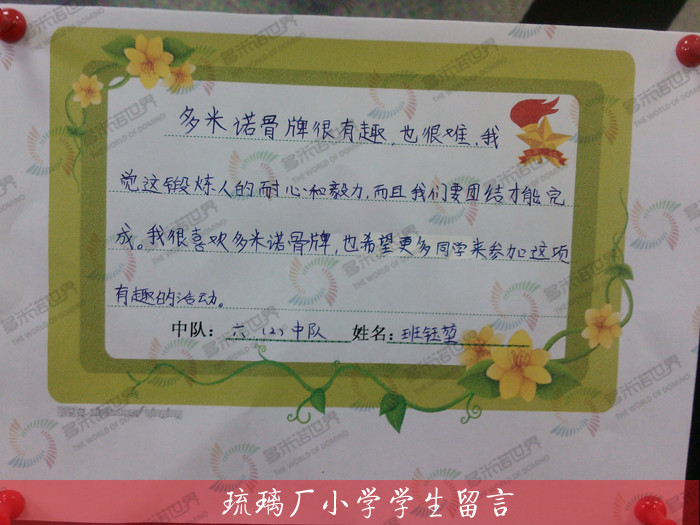 多米诺骨牌很有趣,也很难,我
觉这锻炼人的耐心和毅力,而且我们要团结才能完
成。我很喜欢多米诺骨牌,也希望更多同学来参加这项
有趣的活动。
中队: 六(2)中队 姓名: 班钰堃
多米诺世界
THE WORLD OF DOMINO
琉璃厂小学学生留言